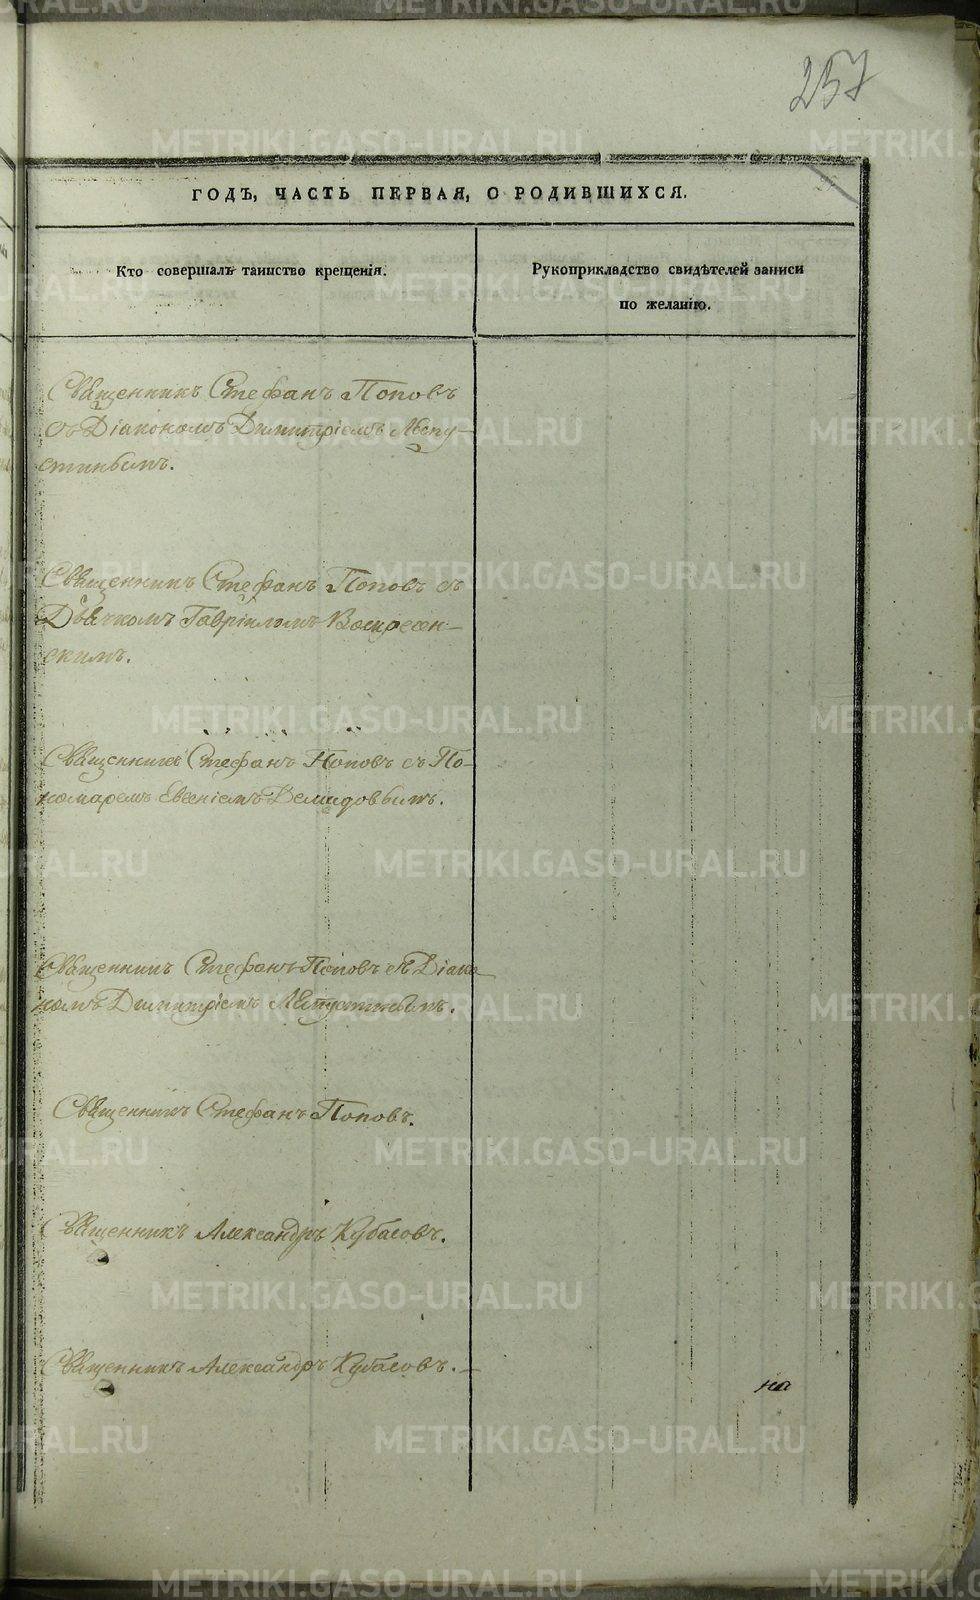 257
ГОДЪ, ЧАСТЬ ПЕРВАЯ, О РОДИВШИХСЯ.
Кто совершалъ таинство крещенія.
Рукоприкладство свидѣтелей записи
по желанію.
Священникъ Стефанъ Поповъ
съ Діакономъ Димитріемъ
Священникъ Стефанъ Поповъ съ
Дьячкомъ Гавріиломъ Воскресен-
скимъ.
Священникъ Стефанъ Поповъ съ По-
номаремъ Демидовымъ.
Священникъ Стефанъ Поповъ съ Діако-
номъ Димитріемъ
Священникъ Стефанъ Поповъ.
Священникъ Александръ Кубасовъ.
Священникъ Александръ Кубасовъ. —
на
METRIKI.GASO-URAL.RU